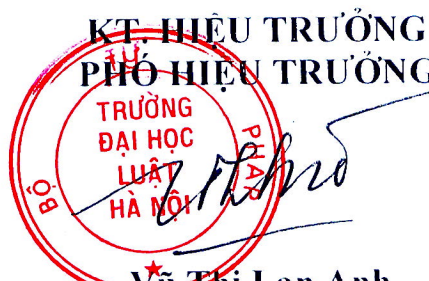 KT. HIỆU TRƯỞNG
PHÓ HIỆU TRƯỞNG
BỘ TƯ PHÁP
TRƯỜNG
ĐẠI HỌC
LUẬT
HÀ NỘI
Vũ Thị Lan Anh